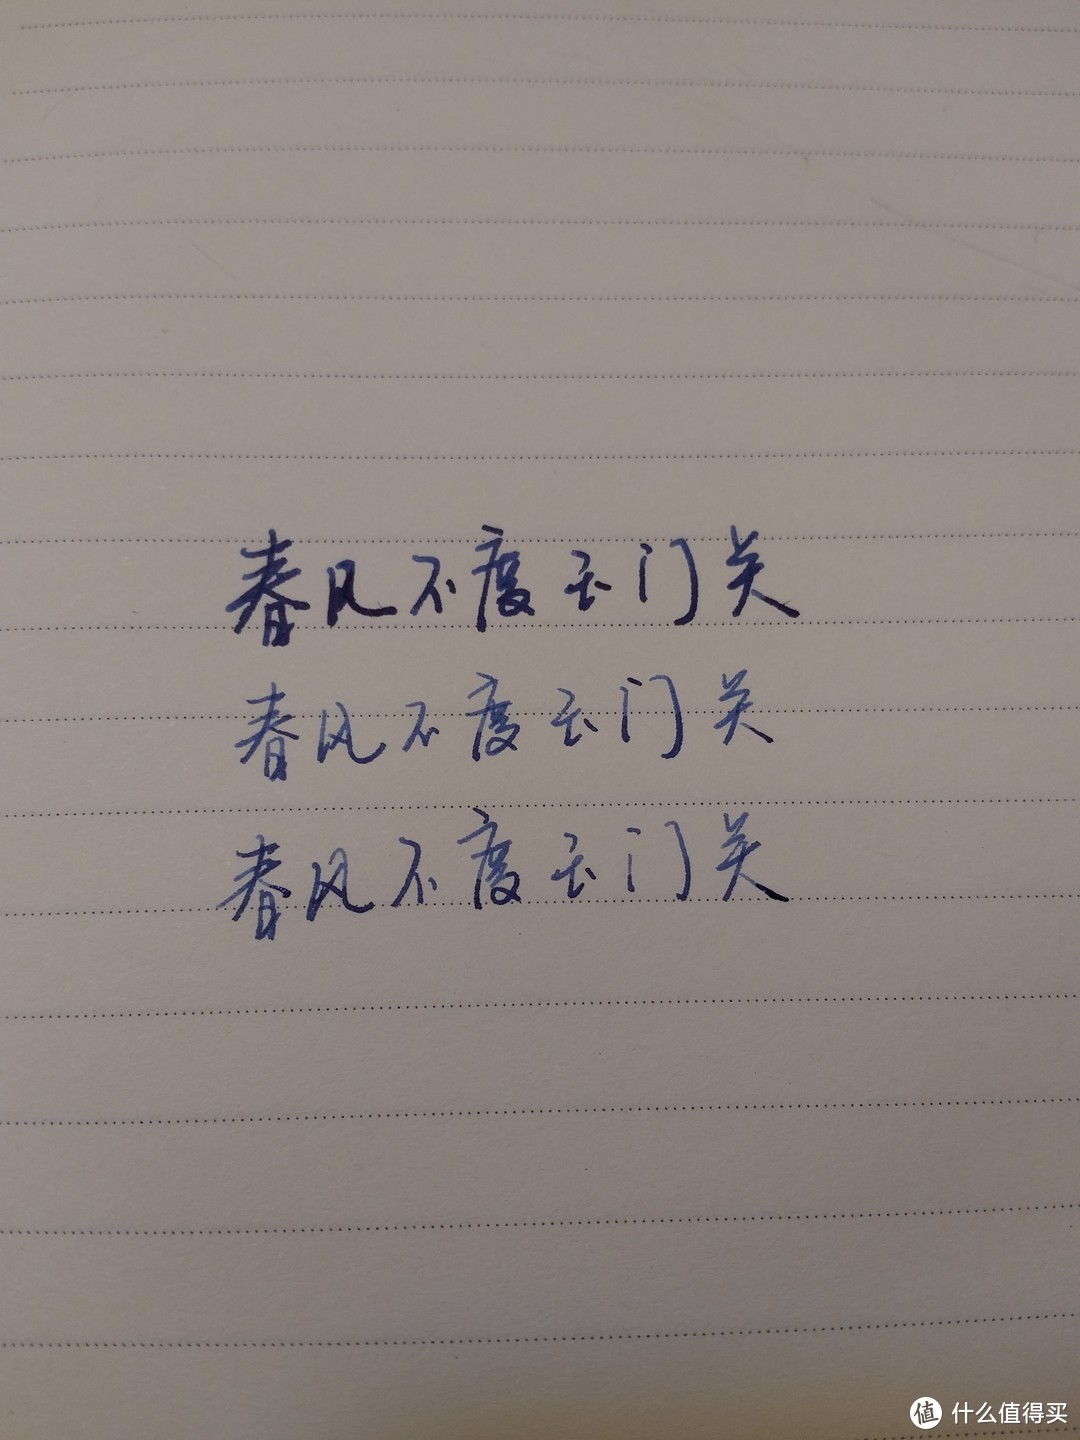 春风不度玉门关
春风不度玉门关
春风不度玉门关
值 什么值得买